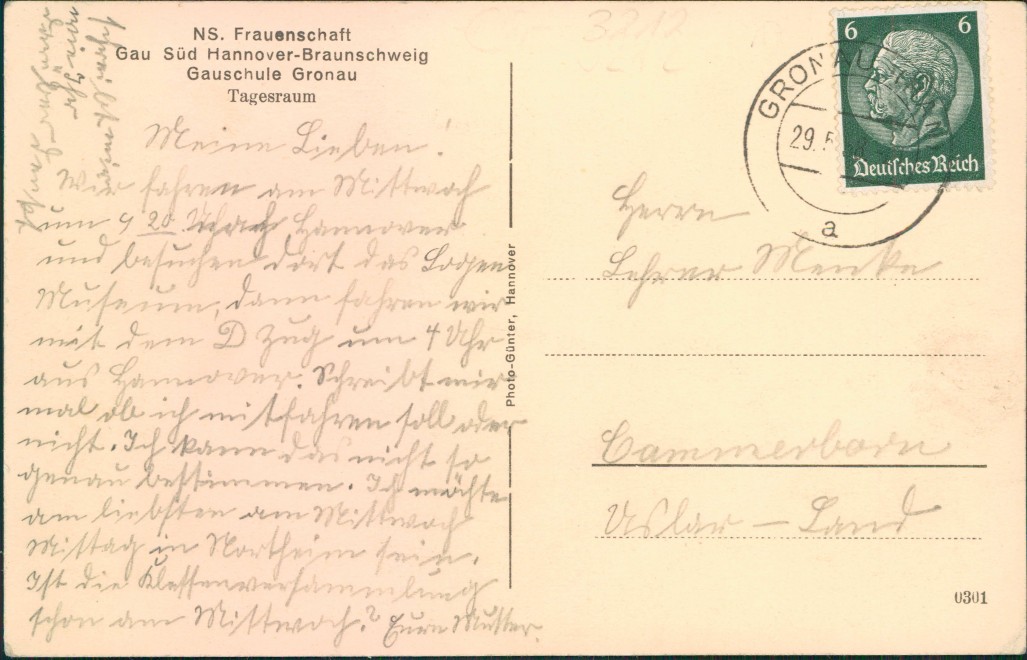 NS. Frauenschaft
Gau Süd Hannover-Braunschweig
Gauschule Gronau
Tagesraum
Meine Lieben!
Wir fahren am Mittwoch
um 9 20 Uhr nach Hannover
und besuchen dort das Logen
Museum, dann fahren wir
mit dem D Zug um 4 Uhr
aus Hannover. Schreibt mir
mal ob ich mitfahren soll oder
nicht. Ich kann das nicht so
genau bestimmen. Ich möchte
am liebsten am Mittwoch
Mittag in Northeim sein.
Ist die Klassenversammlung
schon am Mittwoch? Eure Mutter.
Schreibt mir
wie Ihr
darüber denkt
Photo-Günter, Hannover
6 6
Deutsches Reich
GRONAU
29.5
a
Herrn
Lehrer Menke
Cammerborn
Uslar - Land
0301